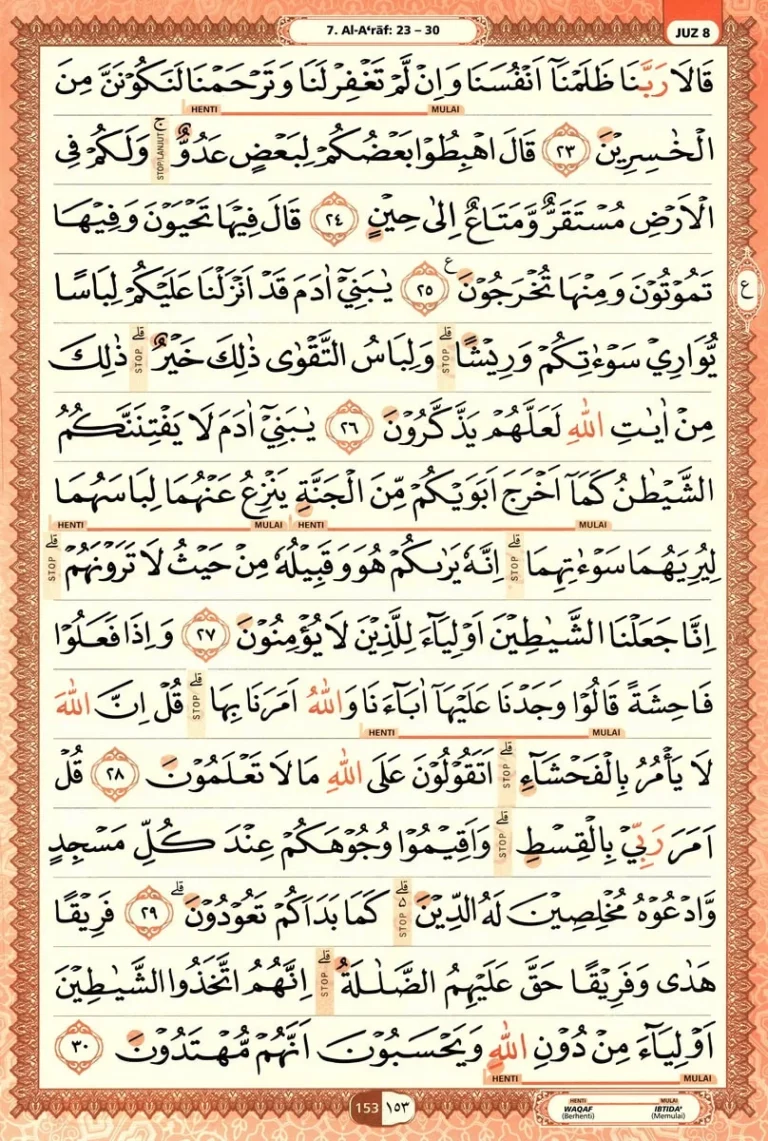 7. Al-A‘rāf: 23 – 30
JUZ 8
قَالَا رَبَّنَا ظَلَمْنَآ اَنْفُسَنَا وَاِنْ لَّمْ تَغْفِرْ لَنَا وَتَرْحَمْنَا لَنَكُوْنَنَّ مِنَ
HENTI MULAI
الْخٰسِرِيْنَ ٢٣ قَالَ اهْبِطُوْا بَعْضُكُمْ لِبَعْضٍ عَدُوٌّ ۚ STOP/LANJUT وَلَكُمْ فِى
الْاَرْضِ مُسْتَقَرٌّ وَّمَتَاعٌ اِلٰى حِيْنٍ ٢٤ قَالَ فِيْهَا تَحْيَوْنَ وَفِيْهَا
تَمُوْتُوْنَ وَمِنْهَا تُخْرَجُوْنَ ࣖ ٢٥ يٰبَنِيْٓ اٰدَمَ قَدْ اَنْزَلْنَا عَلَيْكُمْ لِبَاسًا
ع
يُّوَارِيْ سَوْءٰتِكُمْ وَرِيْشًا ۗ STOP وَلِبَاسُ التَّقْوٰى ذٰلِكَ خَيْرٌ ۗ STOP ذٰلِكَ
مِنْ اٰيٰتِ اللّٰهِ لَعَلَّهُمْ يَذَّكَّرُوْنَ ٢٦ يٰبَنِيْٓ اٰدَمَ لَا يَفْتِنَنَّكُمُ
الشَّيْطٰنُ كَمَآ اَخْرَجَ اَبَوَيْكُمْ مِّنَ الْجَنَّةِ يَنْزِعُ عَنْهُمَا لِبَاسَهُمَا
HENTI MULAI HENTI MULAI
لِيُرِيَهُمَا سَوْءٰتِهِمَا ۗ STOP اِنَّهٗ يَرٰىكُمْ هُوَ وَقَبِيْلُهٗ مِنْ حَيْثُ لَا تَرَوْنَهُمْ ۗ STOP
اِنَّا جَعَلْنَا الشَّيٰطِيْنَ اَوْلِيَاۤءَ لِلَّذِيْنَ لَا يُؤْمِنُوْنَ ٢٧ وَاِذَا فَعَلُوْا
فَاحِشَةً قَالُوْا وَجَدْنَا عَلَيْهَآ اٰبَاۤءَنَا وَاللّٰهُ اَمَرَنَا بِهَا ۗ STOP قُلْ اِنَّ اللّٰهَ
HENTI MULAI
لَا يَأْمُرُ بِالْفَحْشَاۤءِ ۗ STOP اَتَقُوْلُوْنَ عَلَى اللّٰهِ مَا لَا تَعْلَمُوْنَ ٢٨ قُلْ
اَمَرَ رَبِّيْ بِالْقِسْطِ ۗ STOP وَاَقِيْمُوْا وُجُوْهَكُمْ عِنْدَ كُلِّ مَسْجِدٍ
وَّادْعُوْهُ مُخْلِصِيْنَ لَهُ الدِّيْنَ ەۗ STOP كَمَا بَدَاَكُمْ تَعُوْدُوْنَ ۗ ٢٩ فَرِيْقًا
هَدٰى وَفَرِيْقًا حَقَّ عَلَيْهِمُ الضَّلٰلَةُ ۗ STOP اِنَّهُمُ اتَّخَذُوا الشَّيٰطِيْنَ
اَوْلِيَاۤءَ مِنْ دُوْنِ اللّٰهِ وَيَحْسَبُوْنَ اَنَّهُمْ مُّهْتَدُوْنَ ٣٠
HENTI MULAI
153 ١٥٣
HENTI MULAI
WAQAF IBTIDA'
(Berhenti) (Memulai)